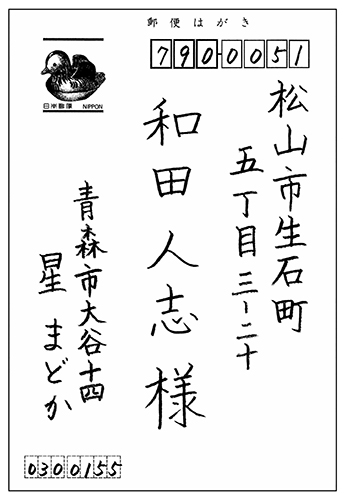 郵便はがき
日本郵便 NIPPON
790-0051
松山市生石町
五丁目三-二十
和田人志様
青森市大谷十四
星まどか
030 0155